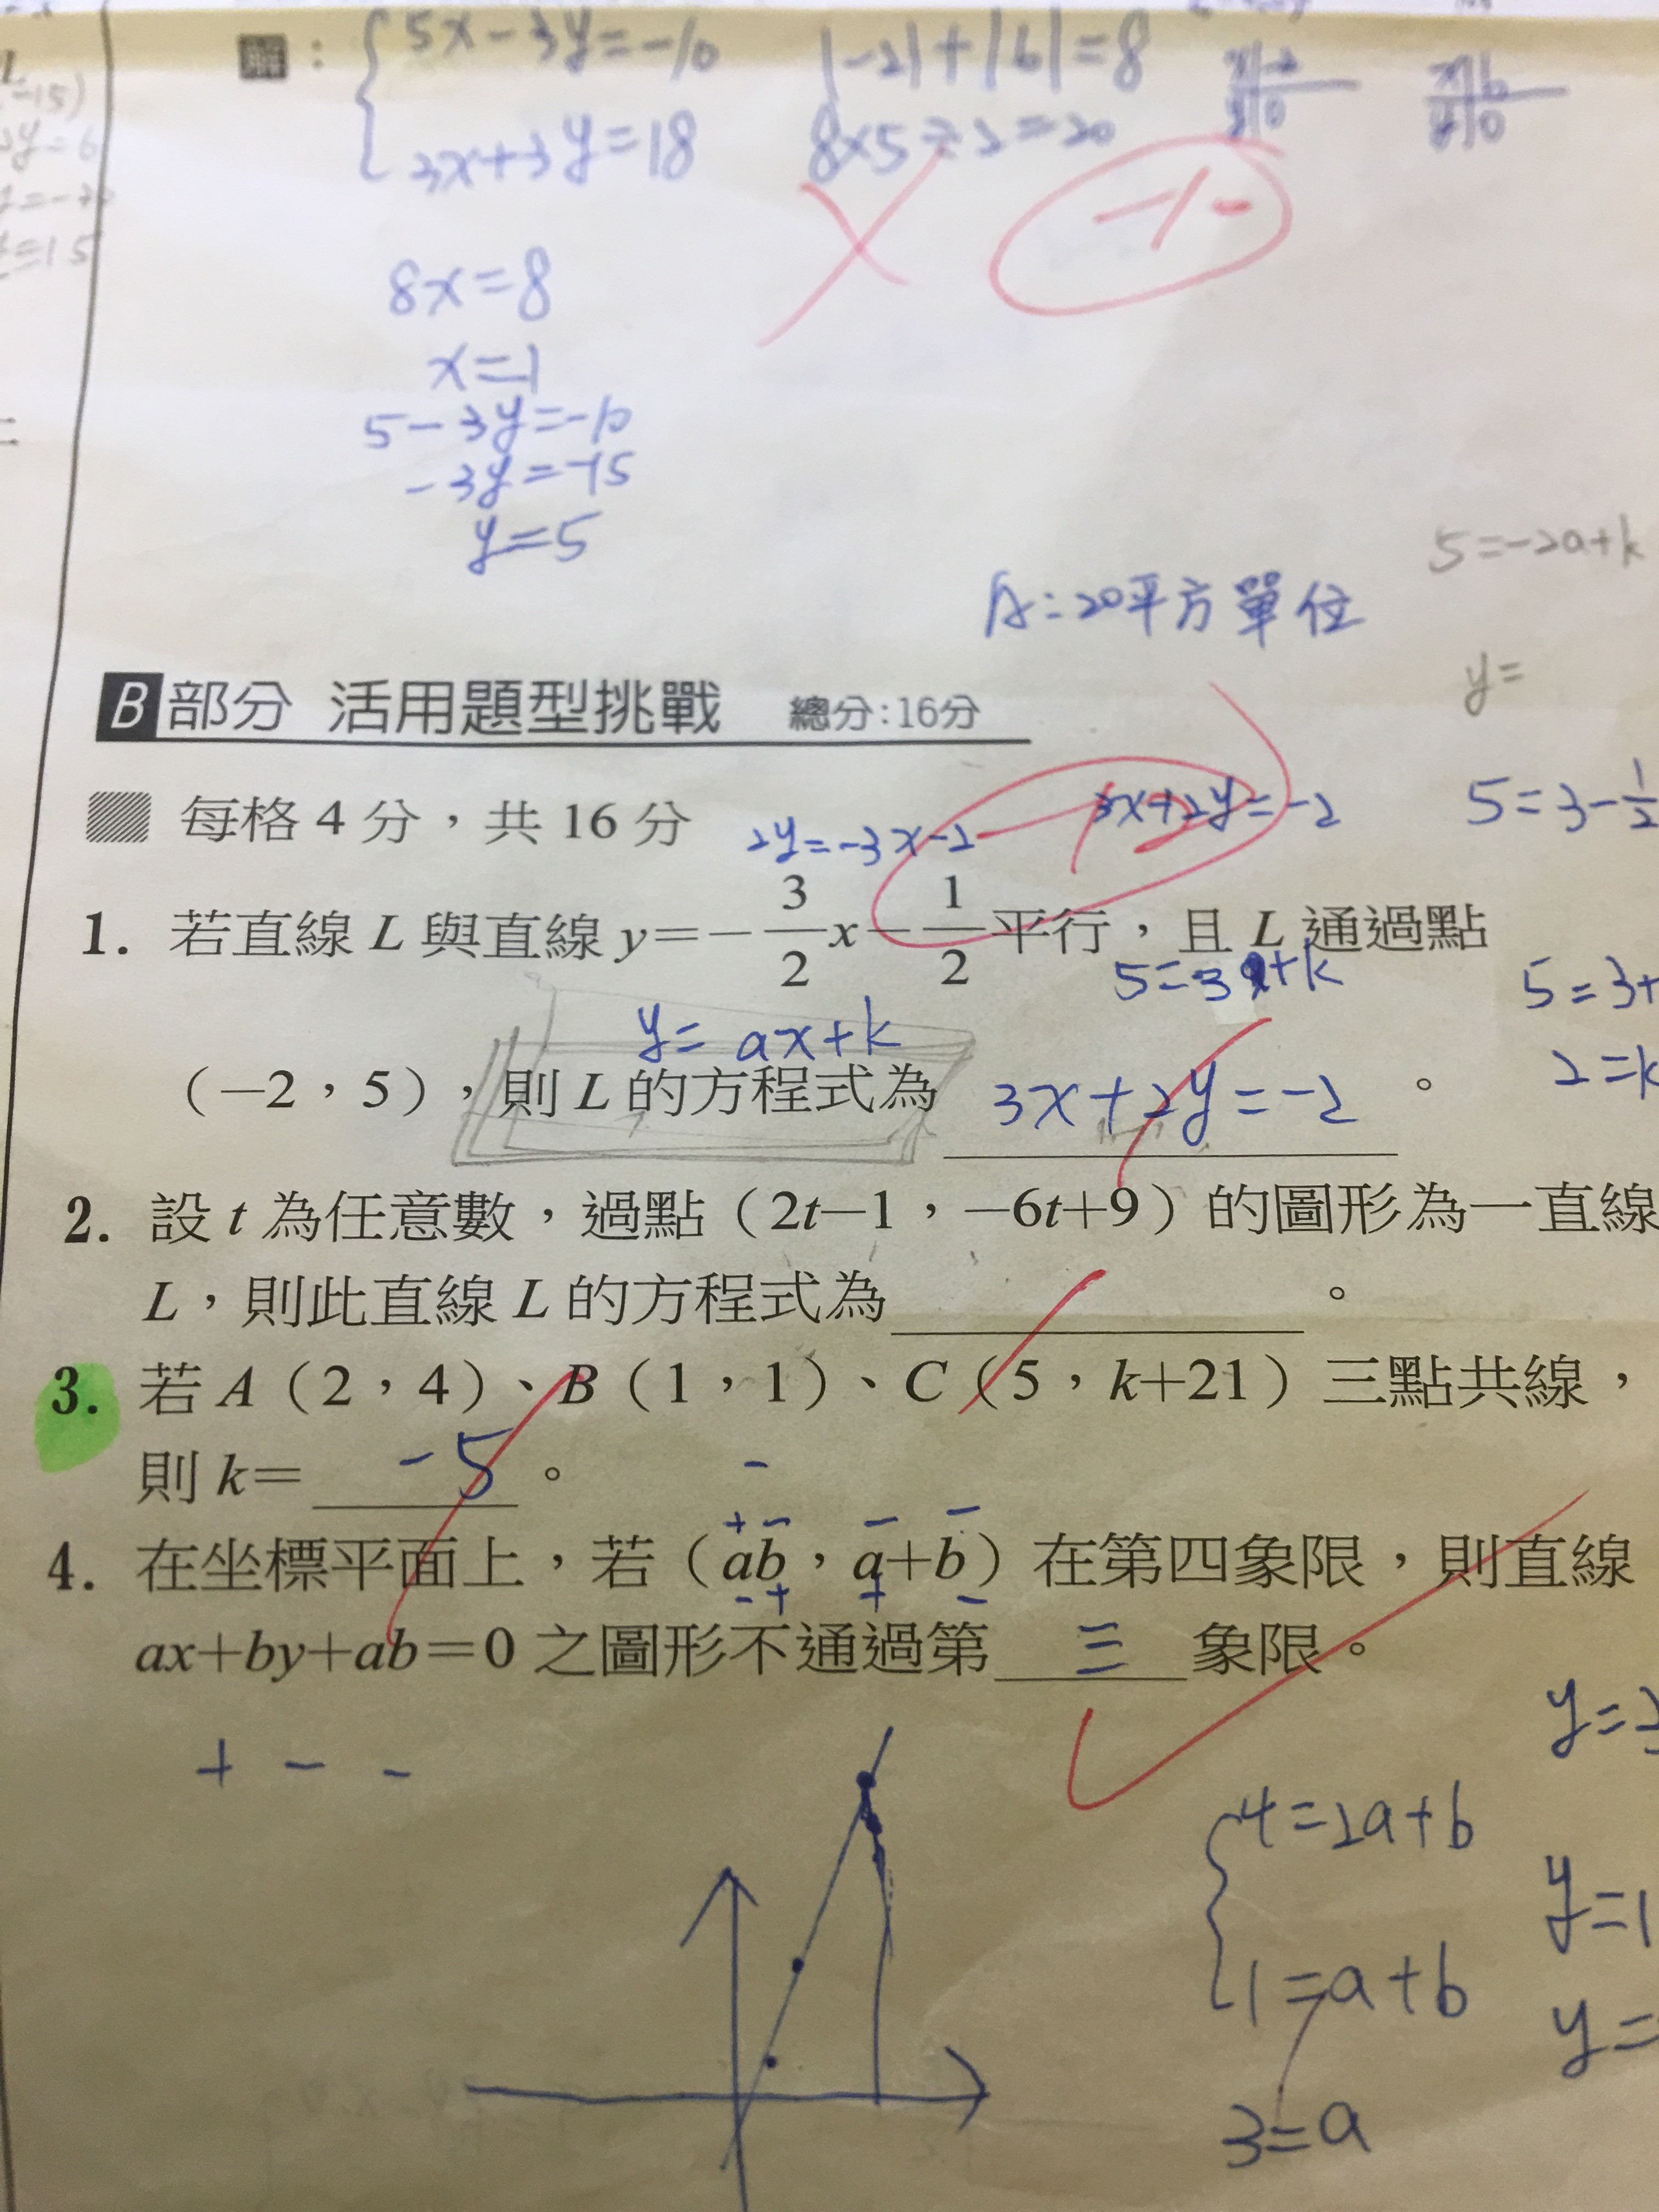 解：
5x-3y=-10
3x+3y=18
|-2|+|6|=8
8×5÷2=20
x|-2
y|0
x|6
y|0
-15)
8x=8
x=1
5-3y=-10
-3y=-15
y=5
A:20平方單位
5=-2a+k
y=
B部分 活用題型挑戰 總分：16分
每格 4 分，共 16 分
2y=-3x-2
3x+2y=-2
5=3-1/2
1. 若直線 L 與直線 y=-3/2x-1/2平行，且 L 通過點
y=ax+k
5=3+
2=k
（-2，5），則 L 的方程式為 3x+2y=-2 。
2. 設 t 為任意數，過點（2t-1，-6t+9）的圖形為一直線
L，則此直線 L 的方程式為 。
3. 若 A（2，4）、B（1，1）、C（5，k+21）三點共線，
則 k= -5 。
4. 在坐標平面上，若（ab，a+b）在第四象限，則直線
ax+by+ab=0 之圖形不通過第 三 象限。
+ - -
4=2a+b
1=a+b
3=a
y=1
y=